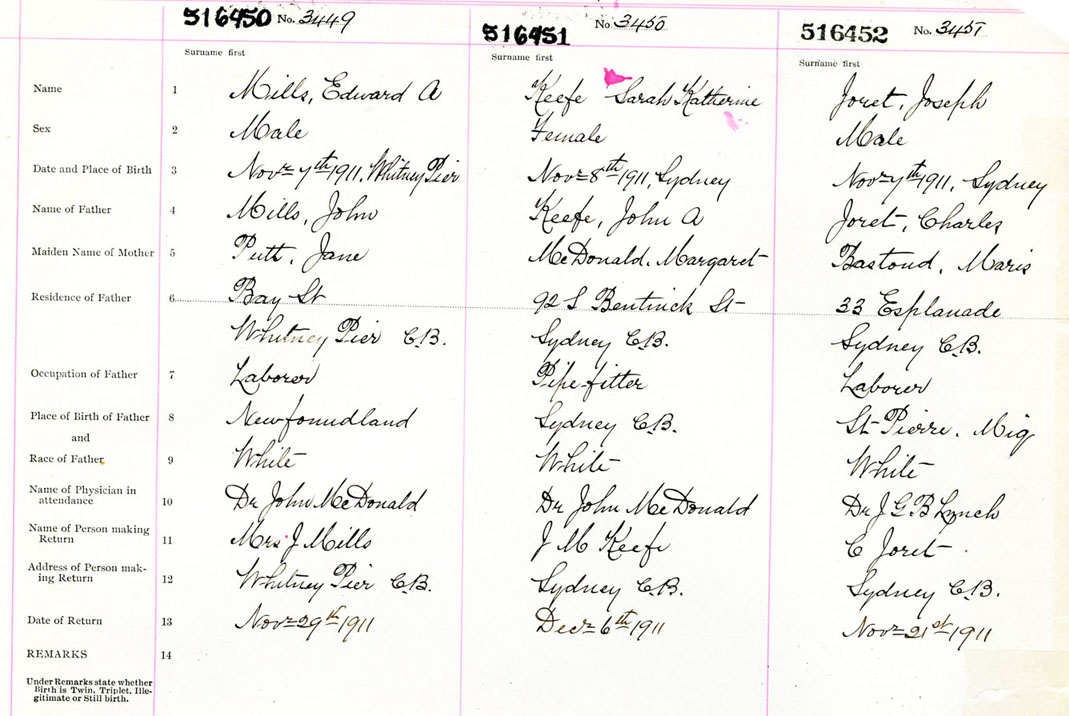 516450 No. 3449
516451 No. 3450
516452 No. 3451
Surname first Surname first Surname first
Name 1 Mills, Edward A Keefe Sarah Katherine Joret, Joseph
Sex 2 Male Female Male
Date and Place of Birth 3 Novr 7th 1911, Whitney Pier Novr 8th 1911, Sydney Novr 7th 1911, Sydney
Name of Father 4 Mills, John Keefe, John A Joret, Charles
Maiden Name of Mother 5 Putt, Jane McDonald, Margaret Bastoud, Maris
Residence of Father 6 Bay St 92 S Bentinck St 33 Esplanade
Whitney Pier C.B. Sydney C.B. Sydney C.B.
Occupation of Father 7 Laborer Pipe-fitter Laborer
Place of Birth of Father 8 Newfoundland Sydney C.B. St Pierre, Miq
and
Race of Father 9 White White White
Name of Physician in
attendance 10 Dr John McDonald Dr John McDonald Dr J G B Lynch
Name of Person making
Return 11 Mrs J Mills J M Keefe C Joret
Address of Person mak-
ing Return 12 Whitney Pier C.B. Sydney C.B. Sydney C.B.
Date of Return 13 Novr 29th 1911 Decr 6th 1911 Novr 21st 1911
REMARKS 14
Under Remarks state whether
Birth is Twin, Triplet, Ille-
gitimate or Still birth.